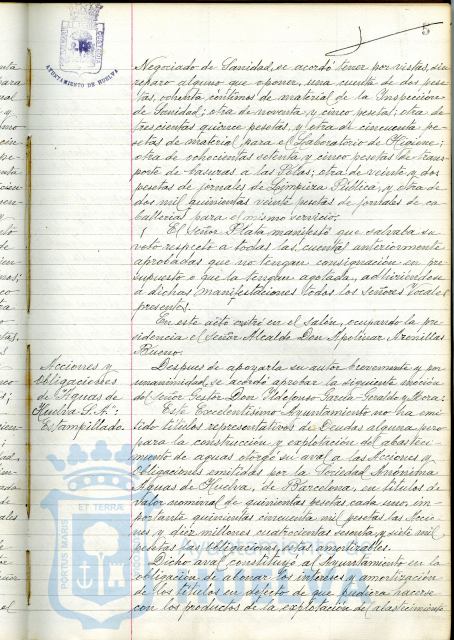 5
AYUNTAMIENTO DE HUELVA
Negociado de Sanidad, se acordó tener por vistas, sin
reparo alguno que oponer, una cuenta de dos pese-
tas, ochenta céntimos de material de la Inspección
de Sanidad; otra de noventa y cinco pesetas; otra de
trescientas quince pesetas, y otra de cincuenta pe-
setas de material para el Laboratorio de Higiene;
otra de ochocientas setenta y cinco pesetas de trans-
porte de basuras a las Polas; otra de veinte y dos
pesetas de jornales de Limpieza Pública, y otra de
dos mil quinientas veinte pesetas de jornales de ca-
ballerías para el mismo servicio.
El Señor Plata manifestó que salvaba su
voto respecto a todas las cuentas anteriormente
aprobadas que no tengan consignación en pre-
supuesto o que la tengan agotada, adhiriéndose
a dichas manifestaciones todos los señores Vocales
presentes.
En este acto entró en el salón, ocupando la pre-
sidencia el Señor Alcalde Don Apolinar Arenillas
Bueno.
Acciones y
obligaciones
de Aguas de
Huelva S.A.:
Estampillado.
Despues de apoyarla su autor brevemente y por
unanimidad, se acordó aprobar la siguiente moción
del Señor Gestor Don Ildefonso García-Geraldo y Mora:
Este Excelentísimo Ayuntamiento no ha emi-
tido títulos representativos de Deudas alguna, pero
para la construcción y explotación del abasteci-
miento de aguas otorgó su aval a las Acciones y
Obligaciones emitidas por la Sociedad Anónima
Aguas de Huelva, de Barcelona, en títulos de
valor nominal de quinientas pesetas cada uno, im-
portante quinientas cincuenta mil pesetas las Accio-
nes y diez millones cuatrocientas sesenta y siete mil
pesetas las obligaciones, estas amortizables.
Dicho aval constituyó al Ayuntamiento en la
obligación de abonar los intereses y amortización
de los títulos en defecto de que pudiera hacerse
con los productos de la explotación del abastecimiento
PORTUS MARIS
ET TERRÆ